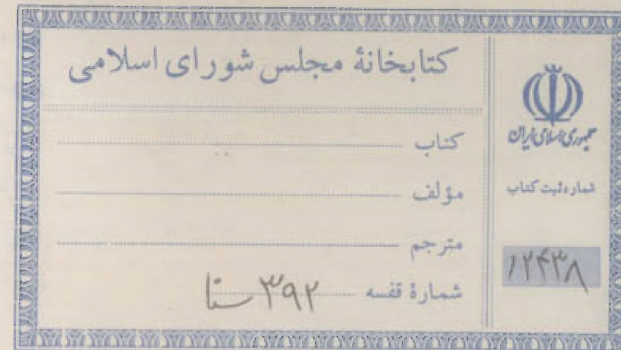 کتابخانهٔ مجلس شورای اسلامی
کتاب
مؤلف
مترجم
شمارهٔ قفسه ۳۹۲ سنا
جمهوری اسلامی ایران
شماره ثبت کتاب
۱۲۴۳۸